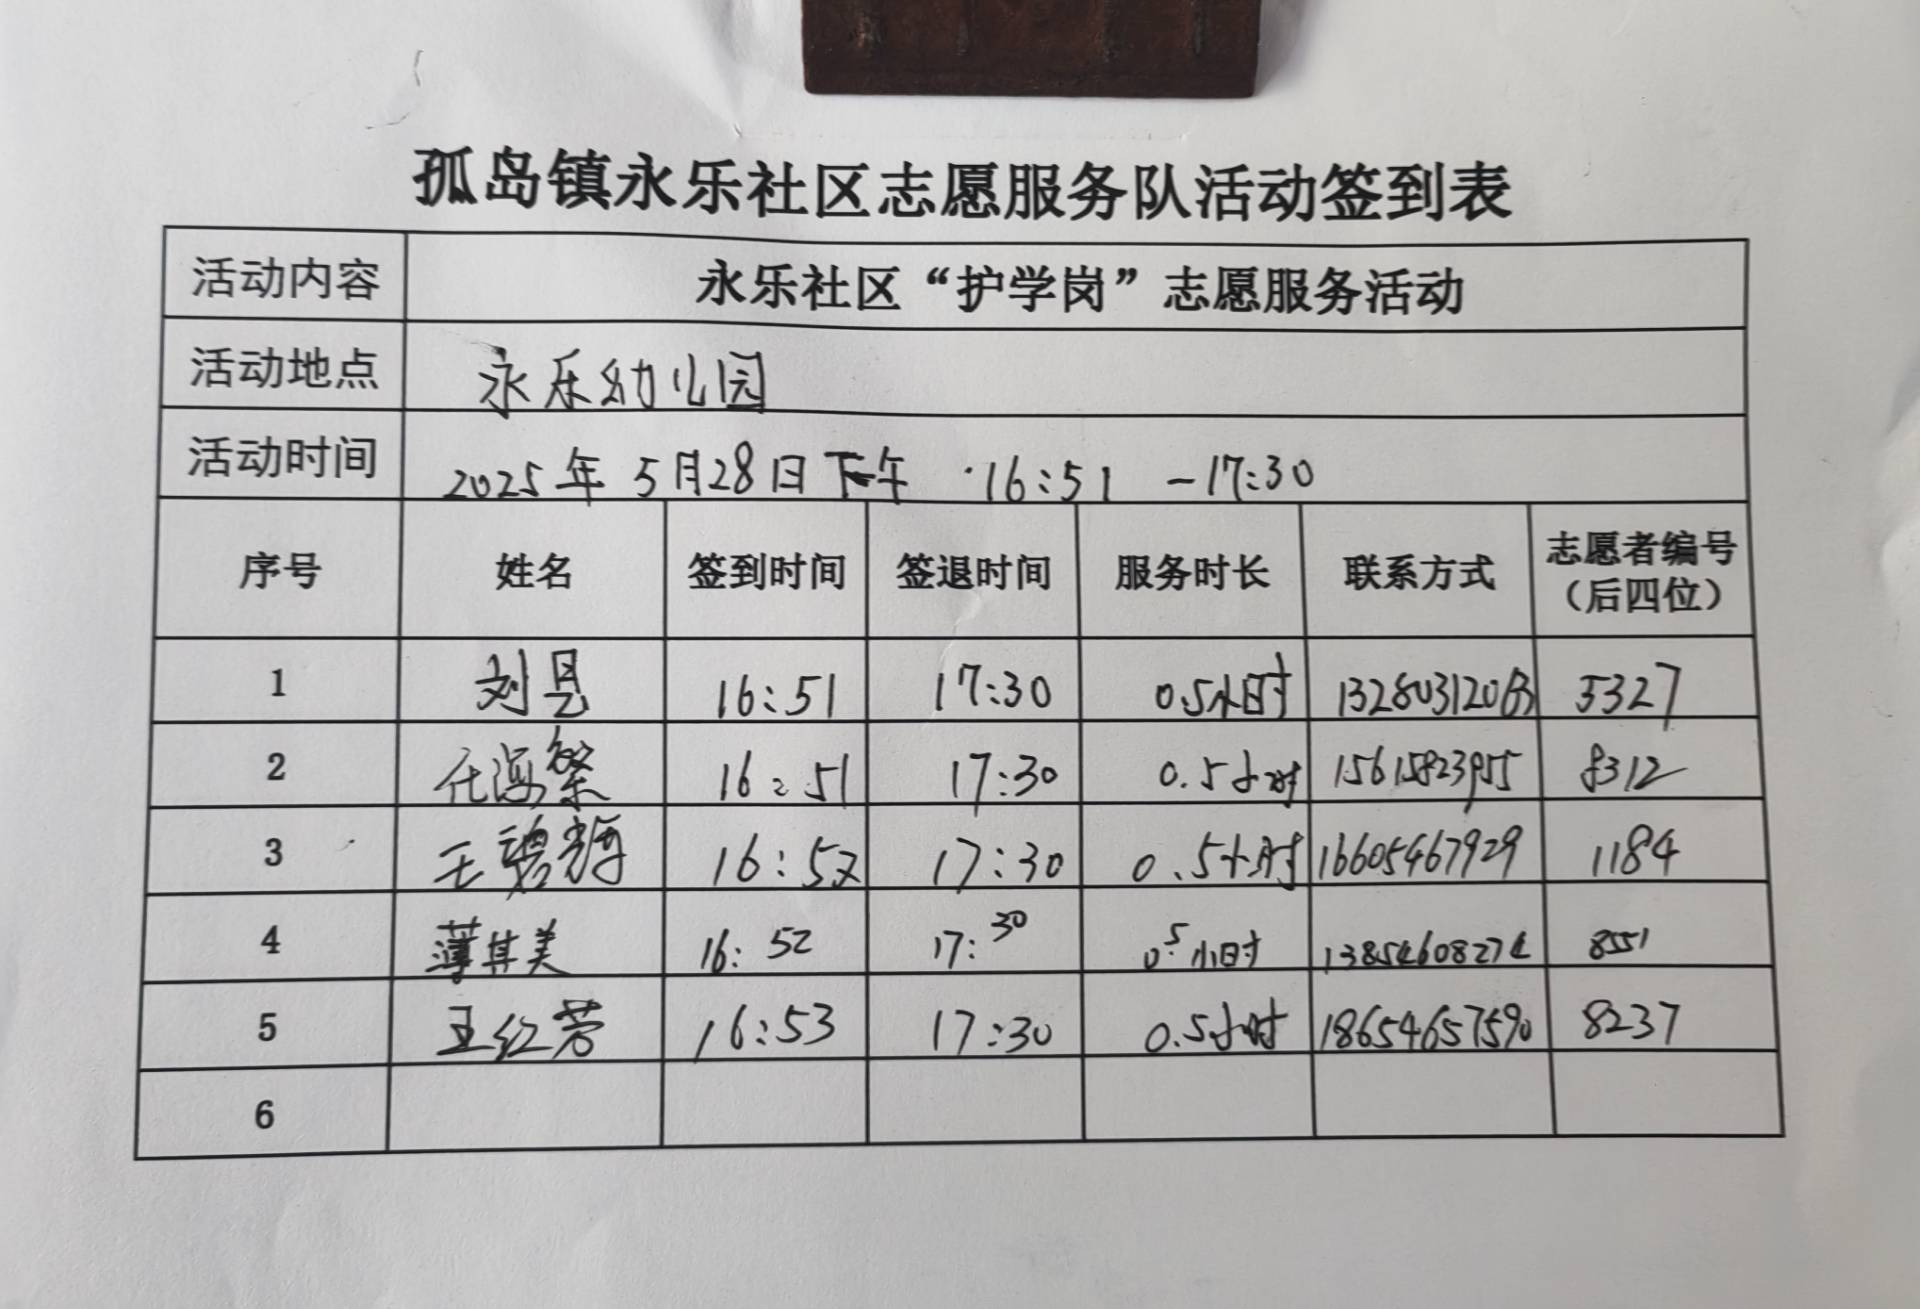 孤岛镇永乐社区志愿服务队活动签到表
活动内容 永乐社区“护学岗”志愿服务活动
活动地点 永乐幼儿园
活动时间 2025年5月28日下午 16:51 -17:30
序号 姓名 签到时间 签退时间 服务时长 联系方式 志愿者编号
（后四位）
1 刘昙 16:51 17:30 0.5小时 5327
2 任海繁 16:51 17:30 0.5小时 15615823955 8312
3 王碧辉 16:52 17:30 0.5小时 16605467929 1184
4 薄其美 16:52 17:30 0.5小时 13854608274 8551
5 王红芳 16:53 17:30 0.5小时 18654657590 8237
6